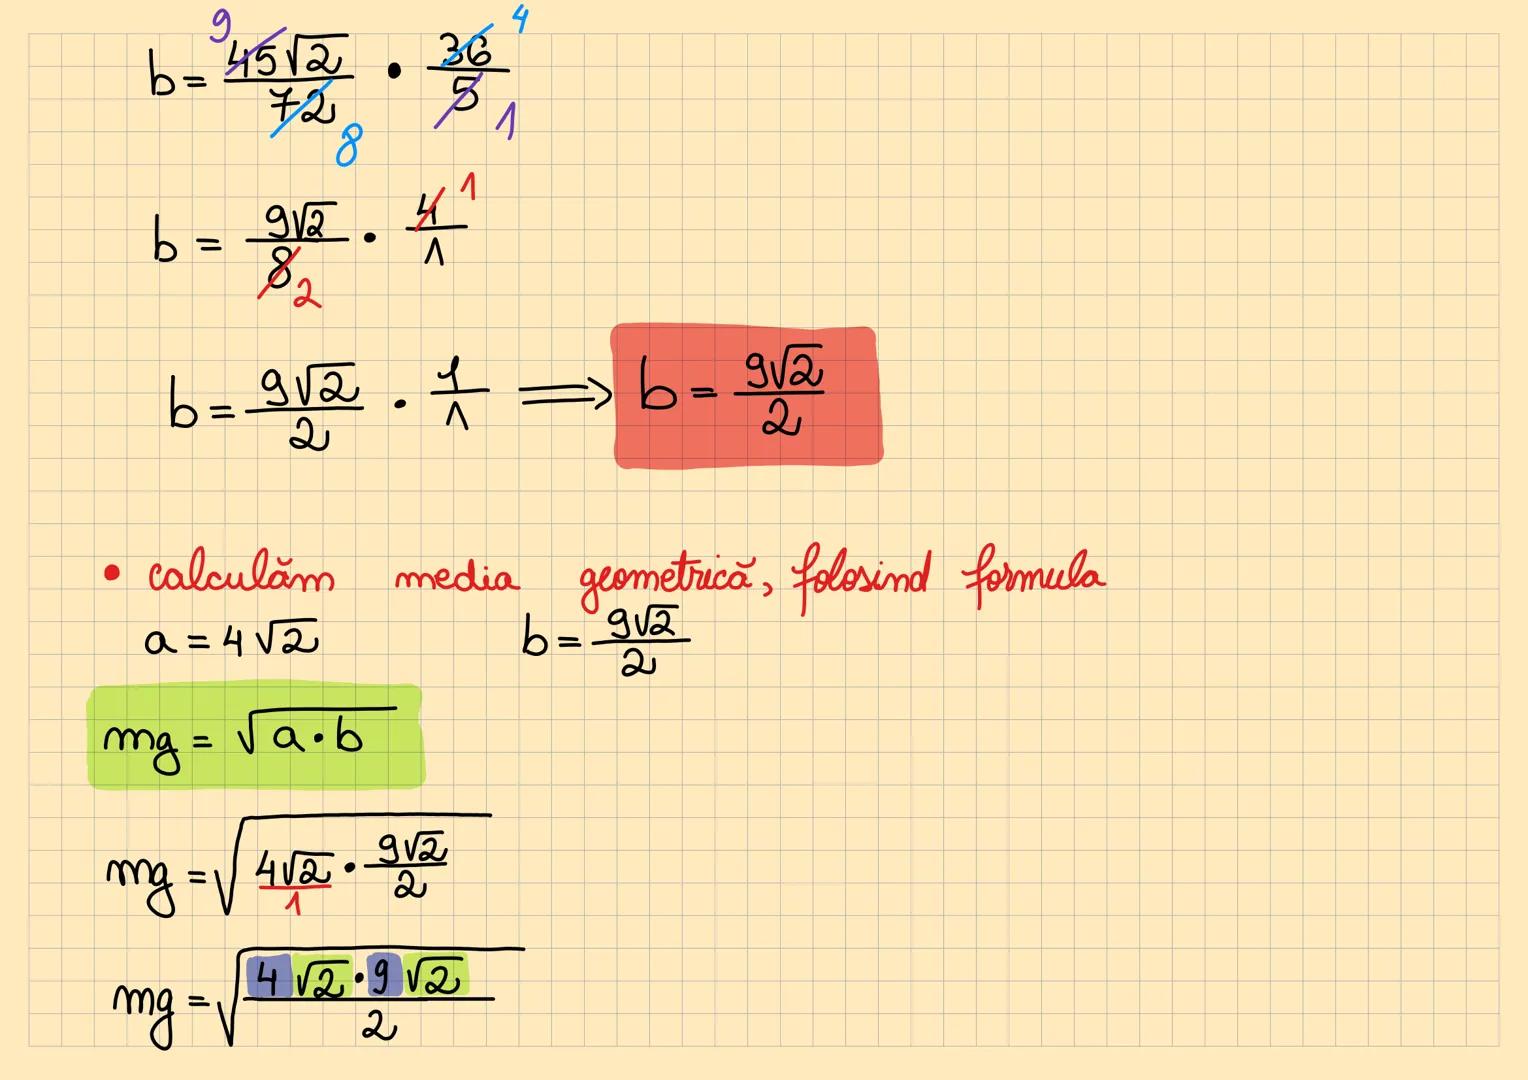 b = 45√2/72 • 36/5 9 8 4 1
b = 9√2/8 • 4/1 2 1
b = 9√2/2 • 1/1 ⟹ b = 9√2/2
• calculăm media geometrică, folosind formula
a = 4√2 b = 9√2/2
mg = √(a • b)
mg = √(4√2/1 • 9√2/2)
mg = √((4√2 • 9√2)/2)